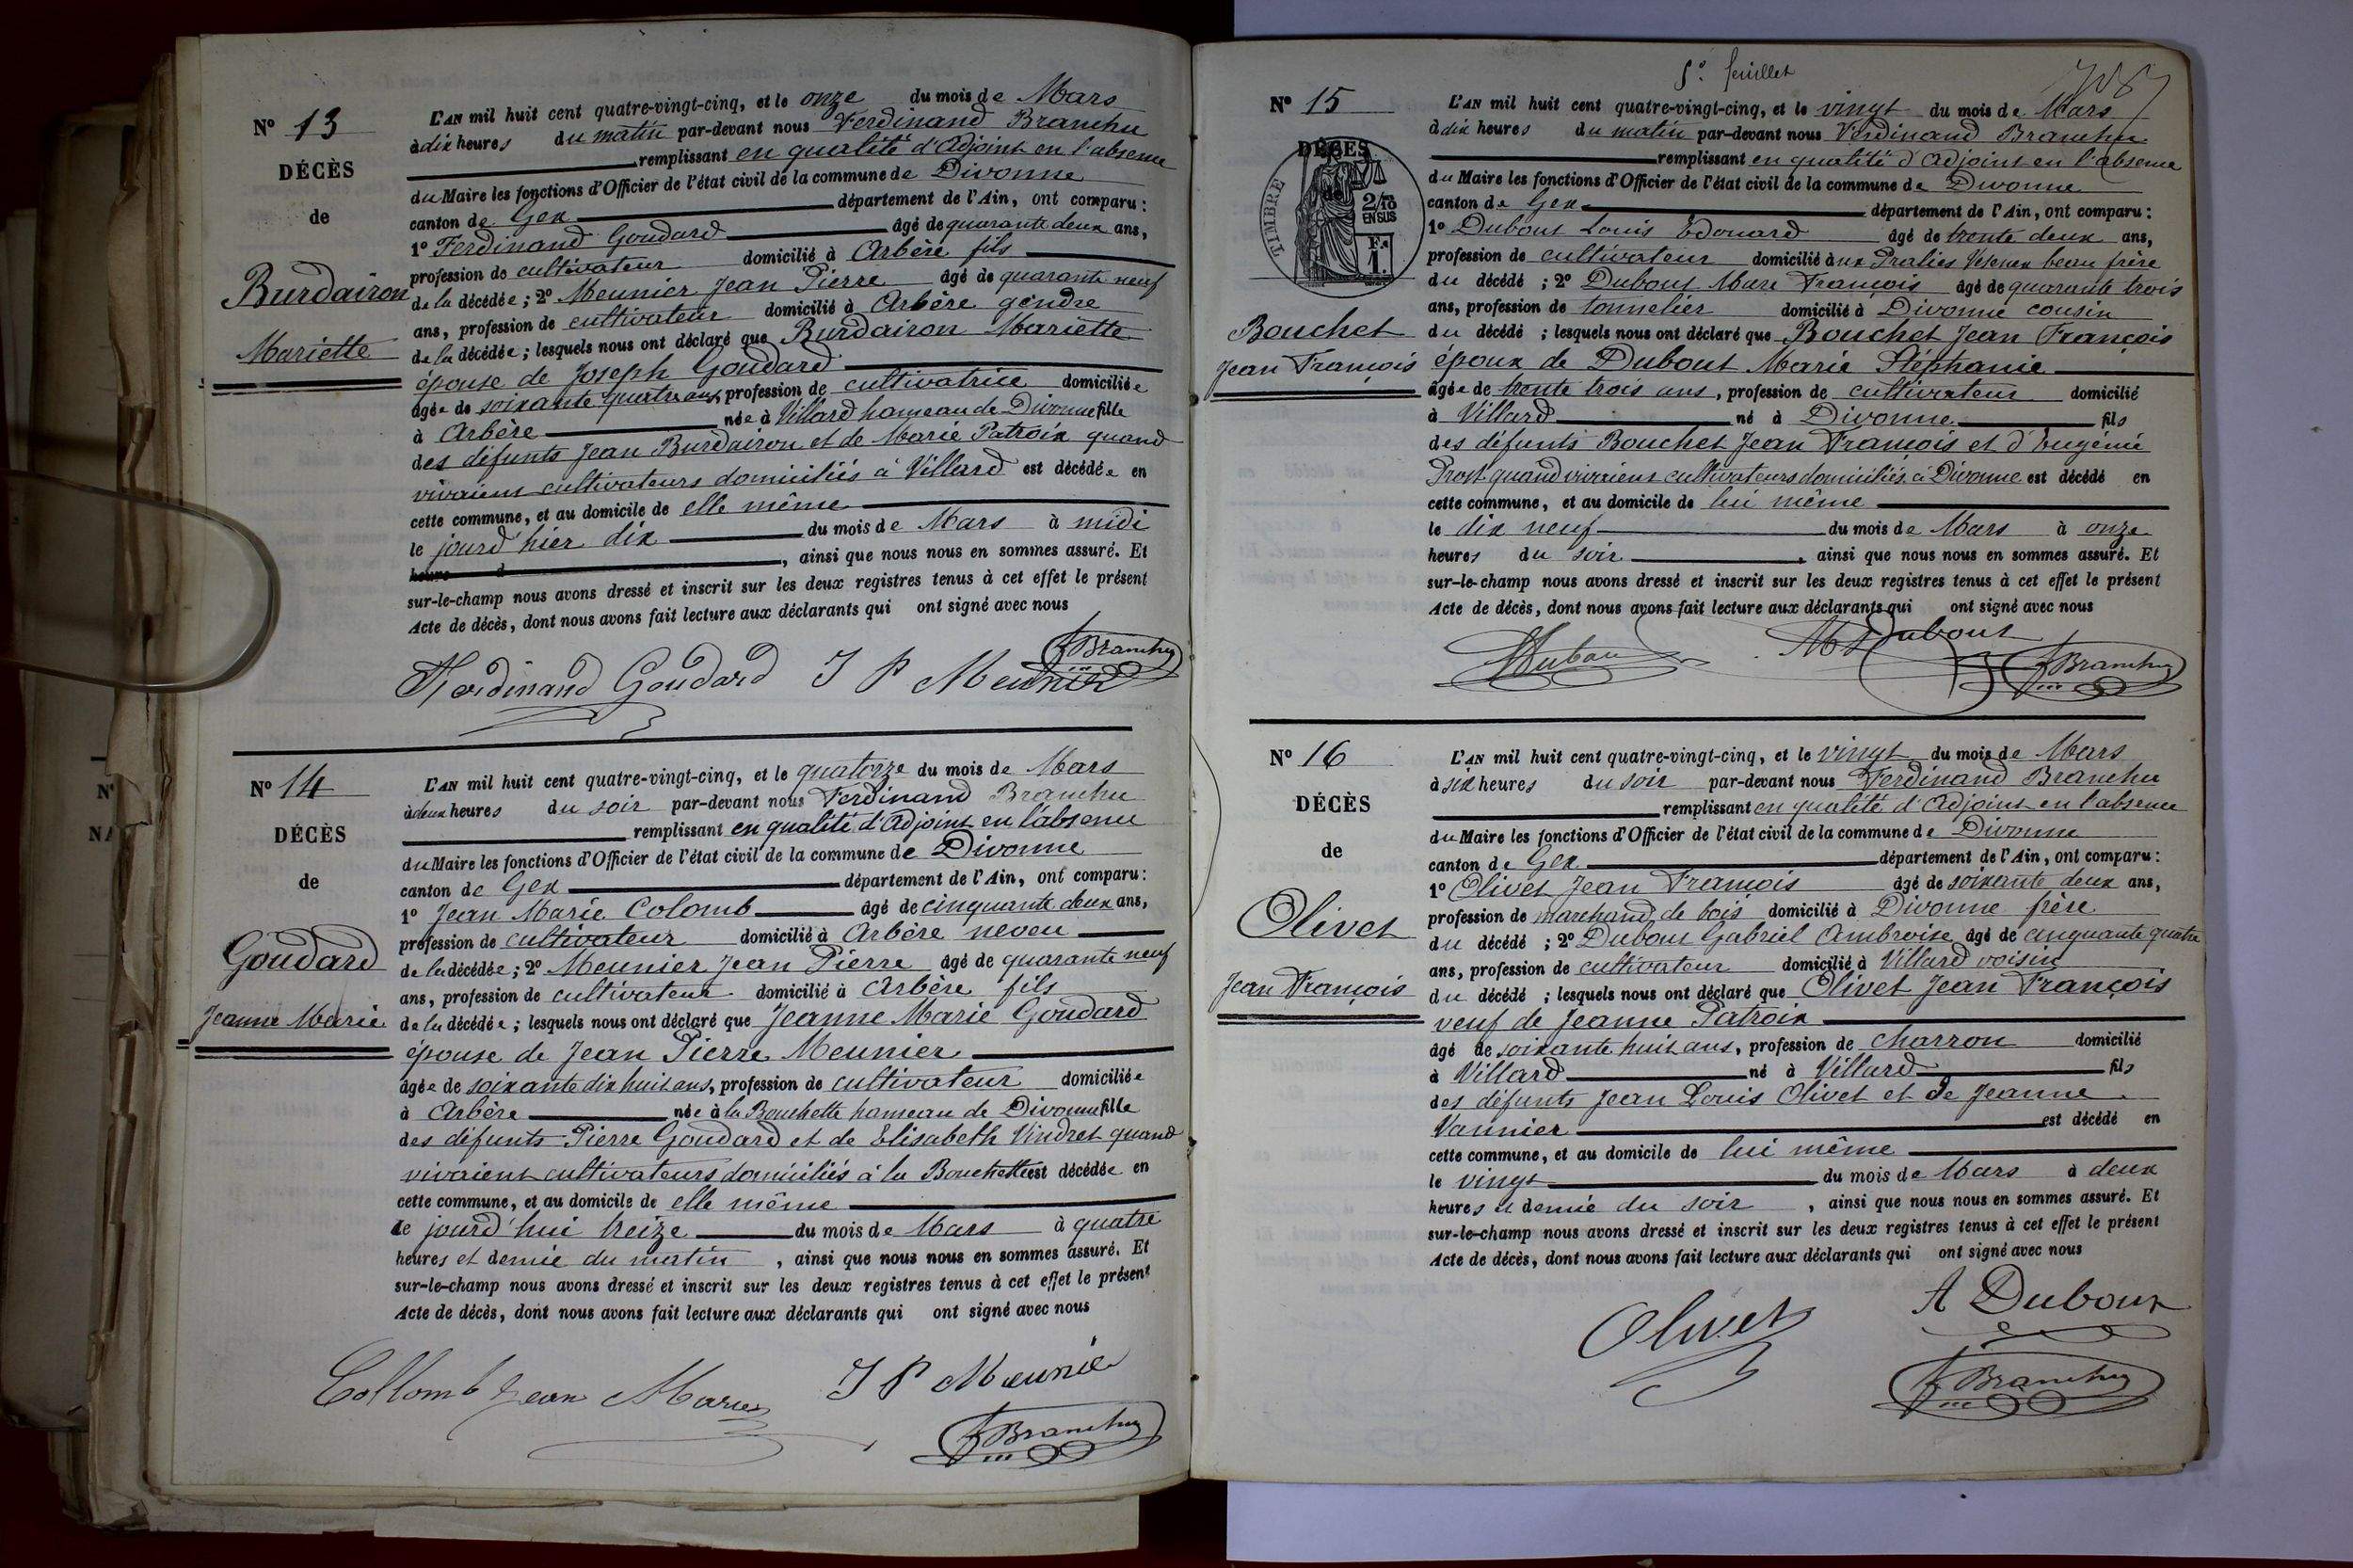 N° 13
DÉCÈS
de
Burdairon
Mariette
L'AN mil huit cent quatre-vingt-cinq, et le onze du mois de Mars
à dix heures du matin par-devant nous Ferdinand Branchu
remplissant en qualité d'Adjoint en l'absence
du Maire les fonctions d'Officier de l'état civil de la commune de Divonne
canton de Gex département de l'Ain, ont comparu :
1° Ferdinand Goudard âgé de quarante deux ans,
profession de cultivateur domicilié à Arbère fils
de la décédée ; 2° Meunier Jean Pierre âgé de quarante neuf
ans, profession de cultivateur domicilié à Arbère gendre
de la décédée ; lesquels nous ont déclaré que Burdairon Mariette
épouse de Joseph Goudard
âgée de soixante quatre ans, profession de cultivatrice domiciliée
à Arbère née à Villard hameau de Divonne fille
des défunts Jean Burdairon et de Marie Patroix quand
vivaient cultivateurs domiciliés à Villard est décédée en
cette commune, et au domicile de elle même
le jourd'hier dix du mois de Mars à midi
heure d , ainsi que nous nous en sommes assuré. Et
sur-le-champ nous avons dressé et inscrit sur les deux registres tenus à cet effet le présent
Acte de décès, dont nous avons fait lecture aux déclarants qui ont signé avec nous
Ferdinand Goudard J P Meunier F Branchu
N° 14
DÉCÈS
de
Goudard
Jeanne Marie
L'AN mil huit cent quatre-vingt-cinq, et le quatorze du mois de Mars
à deux heures du soir par-devant nous Ferdinand Branchu
remplissant en qualité d'Adjoint en l'absence
du Maire les fonctions d'Officier de l'état civil de la commune de Divonne
canton de Gex département de l'Ain, ont comparu :
1° Jean Marie Colomb âgé de cinquante deux ans,
profession de cultivateur domicilié à Arbère neveu
de la décédée ; 2° Meunier Jean Pierre âgé de quarante neuf
ans, profession de cultivateur domicilié à Arbère fils
de la décédée ; lesquels nous ont déclaré que Jeanne Marie Goudard
épouse de Jean Pierre Meunier
âgée de soixante dix huit ans, profession de cultivateur domiciliée
à Arbère née à la Bouchette hameau de Divonne fille
des défunts Pierre Goudard et de Elisabeth Vindret quand
vivaient cultivateurs domiciliés à la Bouchette est décédée en
cette commune, et au domicile de elle même
le jourd'hui treize du mois de Mars à quatre
heures et demie du matin , ainsi que nous nous en sommes assuré. Et
sur-le-champ nous avons dressé et inscrit sur les deux registres tenus à cet effet le présent
Acte de décès, dont nous avons fait lecture aux déclarants qui ont signé avec nous
Collomb Jean Marie J P Meunie
F Branchu
5e feuillet
N° 15
DÉCÈS
TIMBRE
2/10
EN SUS
1 F.
Bouchet
Jean François
L'AN mil huit cent quatre-vingt-cinq, et le vingt du mois de Mars
à dix heures du matin par-devant nous Ferdinand Branchu
remplissant en qualité d'Adjoint en l'absence
du Maire les fonctions d'Officier de l'état civil de la commune de Divonne
canton de Gex département de l'Ain, ont comparu :
1° Dubout Louis Edouard âgé de trente deux ans,
profession de cultivateur domicilié aux Pralies Vesenex beau frère
du décédé ; 2° Dubout Marc François âgé de quarante trois
ans, profession de tonnelier domicilié à Divonne cousin
du décédé ; lesquels nous ont déclaré que Bouchet Jean François
époux de Dubout Marie Stéphanie
âgé de trente trois ans, profession de cultivateur domicilié
à Villard né à Divonne fils
des défunts Bouchet Jean François et d'Eugénie
Prost quand vivaient cultivateurs domiciliés à Divonne est décédé en
cette commune, et au domicile de lui même
le dix neuf du mois de Mars à onze
heures du soir , ainsi que nous nous en sommes assuré. Et
sur-le-champ nous avons dressé et inscrit sur les deux registres tenus à cet effet le présent
Acte de décès, dont nous avons fait lecture aux déclarants qui ont signé avec nous
Dubout F Branchu
N° 16
DÉCÈS
de
Olivet
Jean François
L'AN mil huit cent quatre-vingt-cinq, et le vingt du mois de Mars
à six heures du soir par-devant nous Ferdinand Branchu
remplissant en qualité d'Adjoint en l'absence
du Maire les fonctions d'Officier de l'état civil de la commune de Divonne
canton de Gex département de l'Ain, ont comparu :
1° Olivet Jean François âgé de soixante deux ans,
profession de marchand de bois domicilié à Divonne frère
du décédé ; 2° Dubout Gabriel Ambroise âgé de cinquante quatre
ans, profession de cultivateur domicilié à Villard voisin
du décédé ; lesquels nous ont déclaré que Olivet Jean François
veuf de Jeanne Patroix
âgé de soixante huit ans, profession de charron domicilié
à Villard né à Villard fils
des défunts Jean Louis Olivet et de Jeanne
Vannier est décédé en
cette commune, et au domicile de lui même
le vingt du mois de Mars à deux
heures et demie du soir , ainsi que nous nous en sommes assuré. Et
sur-le-champ nous avons dressé et inscrit sur les deux registres tenus à cet effet le présent
Acte de décès, dont nous avons fait lecture aux déclarants qui ont signé avec nous
Olivet A Dubout
F Branchu